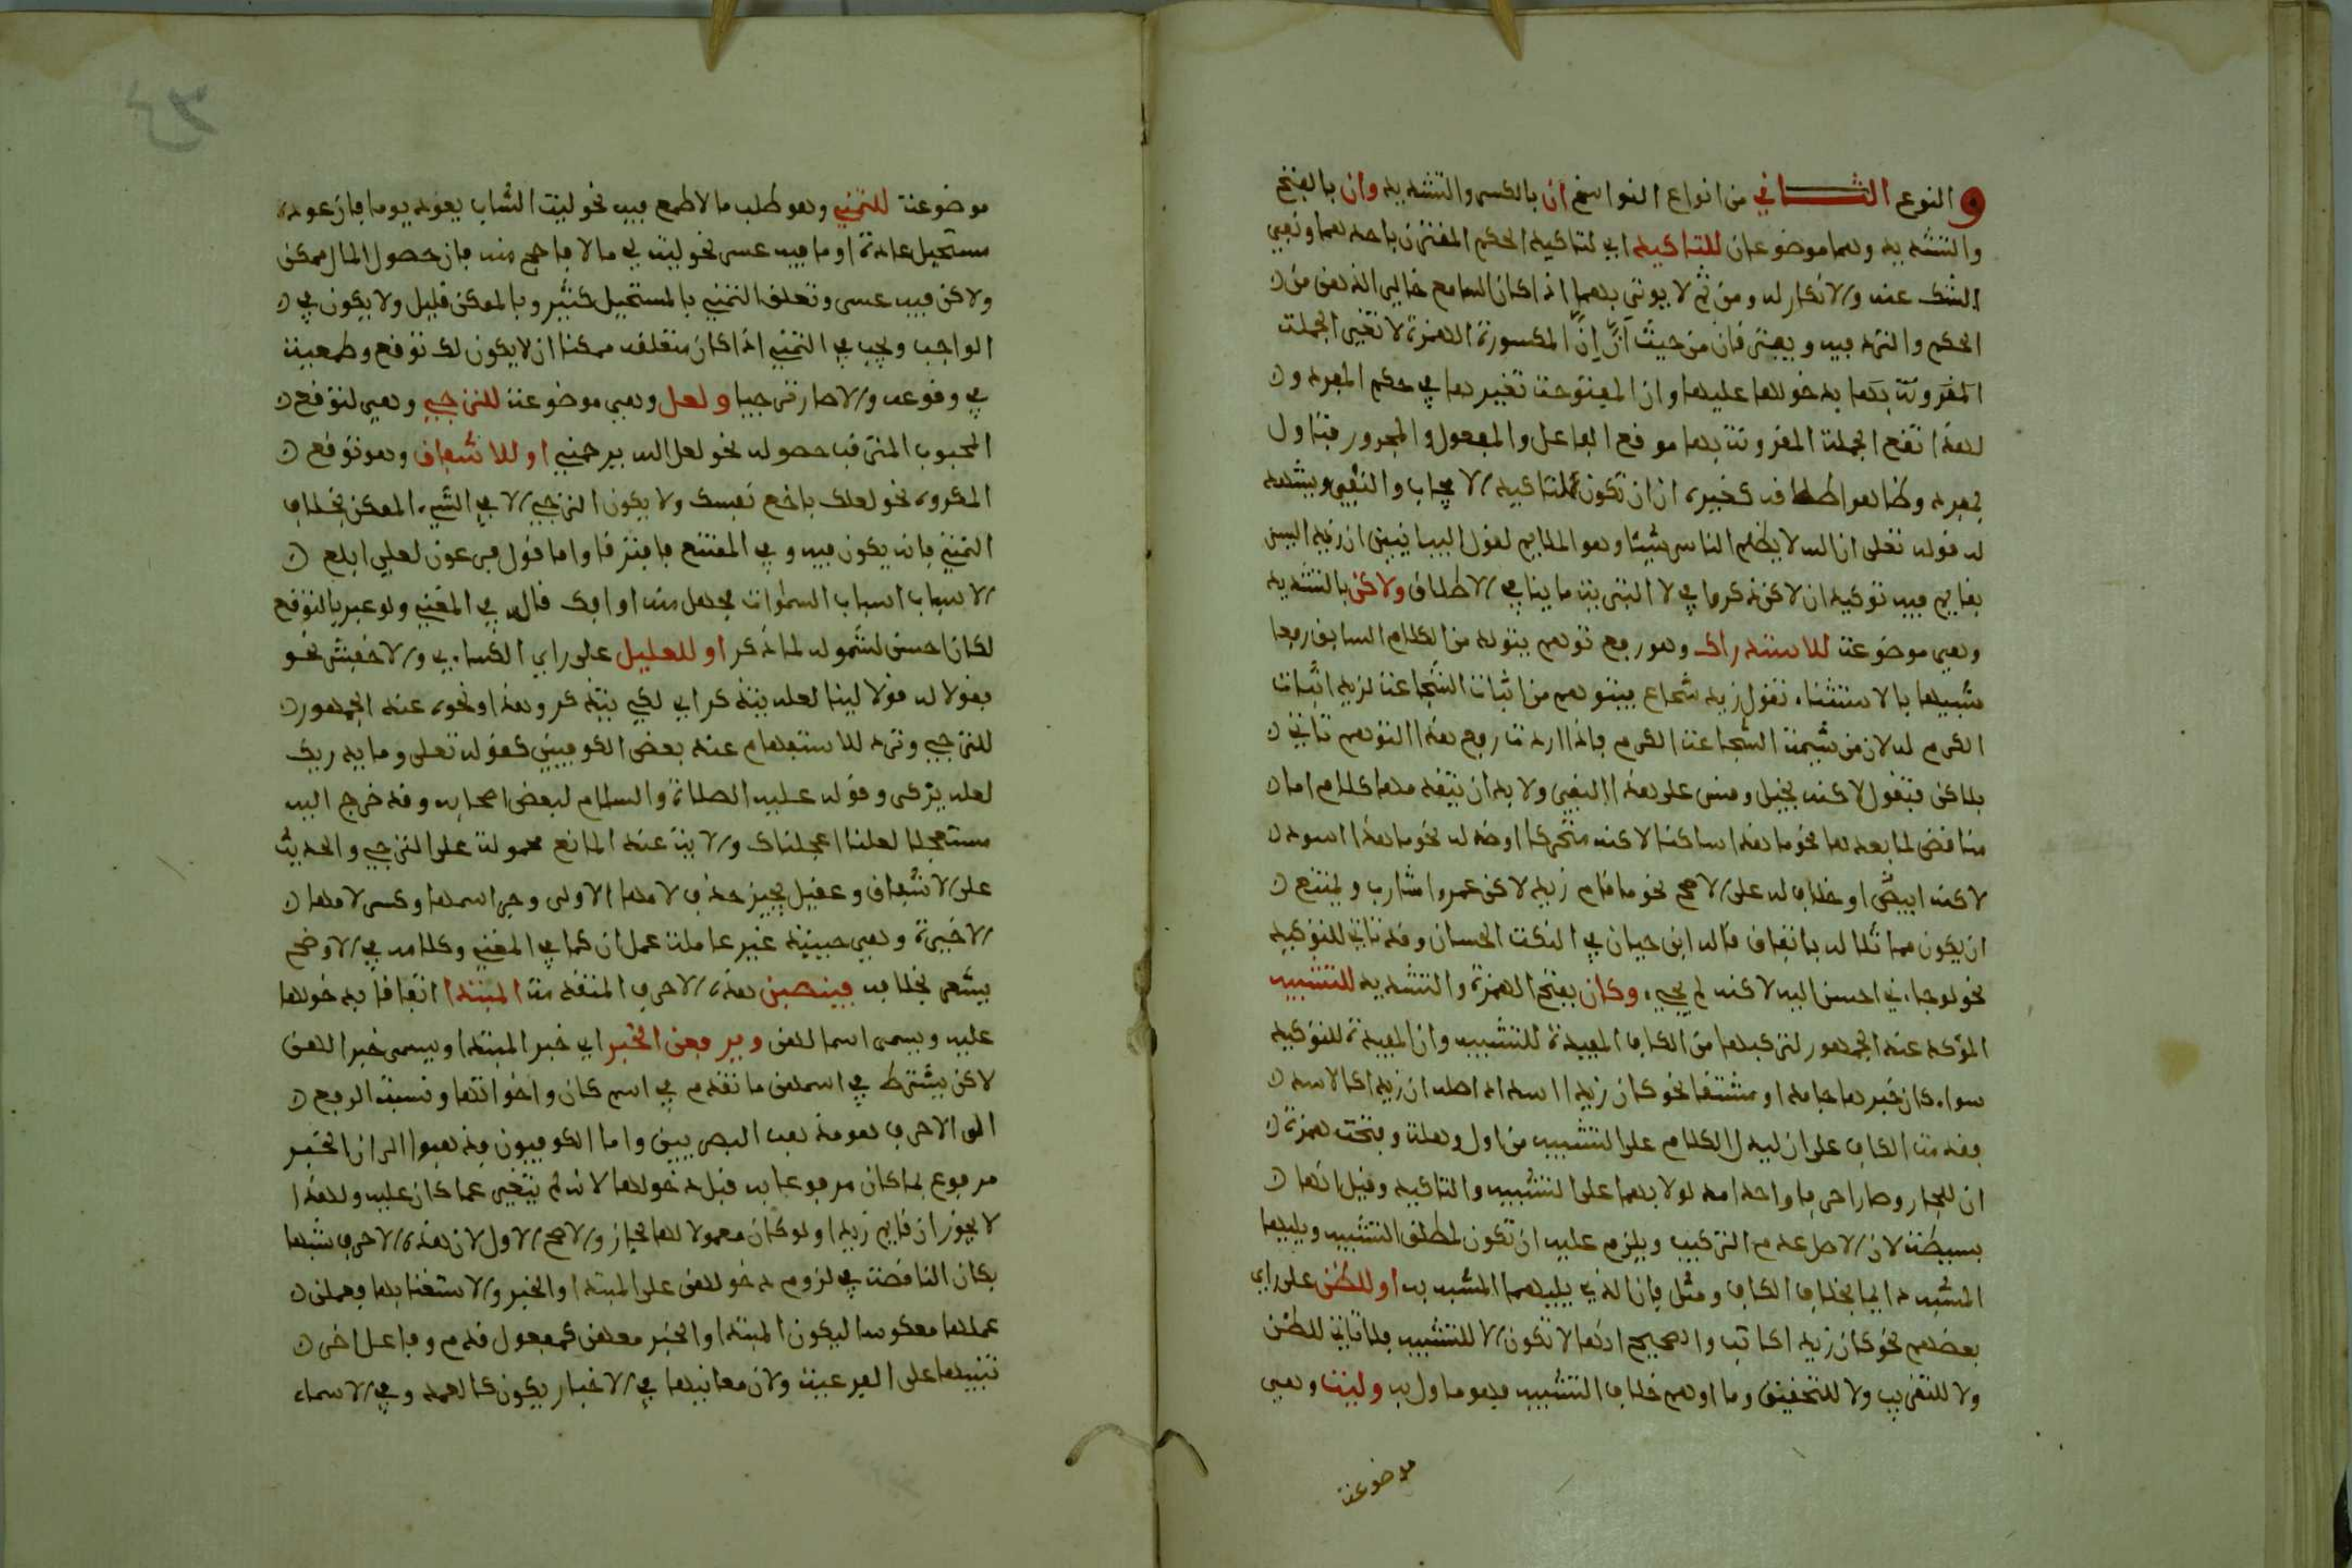 و النوع الثـــاني من انواع النواسخ ان بالكسر والتشديد وان بالفتح
والتشديد وهما موضوعان للتاكيد اي لتاكيد الحكم المقترن باحدهما ونفي
الشك عنه والانكار له ومن ثم لا يوتى بهما اذا كان السامع خالي الذهن من
الحكم والتردد فيه ويفترقان من حيث انّ اِنّ المكسورة الهمزة لا تغير الجملة
المقرونة بها بدخولها عليها وان المفتوحة تغيرها في حكم المفرد و
لهذا تقع الجملة المقرونة بها موقع الفاعل والمفعول والمجرور فتاول
بمفرد وظاهر اطلاقه كغيره ان ان تكون لتاكيد الايجاب والنفي ويشهد
له قوله تعلى ان الله لا يظلم الناس شيئا وهو الملايم لقول البيانيين ان زيدا ليس
بقايم فيه توكيد ان لاكن ذكروا في لا التبرئة ما ينافي الاطلاق ولاكن بالتشديد
وهي موضوعة للاستدراك وهو رفع توهم يتولد من الكلام السابق رفعا
شبيها بالاستثناء تقول زيد شجاع فيتوهم من اثبات الشجاعة لزيد اثبات
الكرم له لان من شيمة الشجاعة الكرم فاذا اردت رفع هذا التوهم تاتي
بلاكن فتقول لاكنه بخيل وقس على هذا النفي ولا بد ان يتقدمها كلام اما
مناقض لما بعدها نحو ما هذا ساكنا لاكنه متحركا او ضد له نحو ما هذا اسود
لاكنه ابيض او خلاف له على الاصح نحو ما قام زيد لاكن عمرا شارب ويمتنع
ان يكون مماثلا له باتفاق قاله ابن حيان في النكت الحسان وقد تاتي للتوكيد
نحو لو جاءني احسن اليه لاكنه لم يجيء وكان بفتح الهمزة والتشديد للتشبيه
المؤكد عند الجمهور لتركبها من الكاف المفيدة للتشبيه وان المفيدة للتوكيد
سواء كان خبرها جامدا او مشتقا نحو كان زيدا اسد اذ اصله ان زيدا كالاسد
فقدمت الكاف على ان ليدل الكلام على التشبيه من اول وهلة وفتحت همزة
ان للجار وصارا حرفا واحدا مدلولا بهما على التشبيه والتاكيد وقيل انها
بسيطة لان الاصل عدم التركيب ويلزم عليه ان تكون لمطلق التشبيه ويليها
المشبه دايما بخلاف الكاف ومثل فان الذي يليهما المشبه به او للظن على راي
بعضهم نحو كان زيدا كاتب والصحيح انها لا تكون الا للتشبيه فلا تاتي للظن
ولا للتقريب ولا للتحقيق وما اوهم خلاف التشبيه فهو ماول به وليت وهي
موضوعة
موضوعة للتمني وهو طلب ما لا طمع فيه نحو ليت الشباب يعود يوما فان عوده
مستحيل عادة او ما فيه عسر نحو ليت لي مالا فاحج منه فان حصول المال ممكن
ولاكن فيه عسر وتعلق التمني بالمستحيل كثير وبالممكن قليل ولا يكون في
الواجب ويجب في التمني اذا كان متعلقه ممكنا ان لا يكون لك توقع وطمعية
في وقوعه والا صار ترجيا ولعل وهي موضوعة للترجي وهي لتوقع
المحبوب المترقب حصوله نحو لعل الله يرحمني او للاشفاق وهو توقع
المكروه نحو لعلك باخع نفسك ولا يكون الترجي الا في الشيء الممكن بخلاف
التمني فانه يكون فيه وفي الممتنع فافترقا واما قول فرعون لعلي ابلغ
الاسباب اسباب السموات فجهل منه او افك قاله في المغني ولو عبر بالتوقع
لكان احسن لشموله لما ذكر او للتعليل على راي الكساءي والاخفش نحو
فقولا له قولا لينا لعله يتذكر اي لكي يتذكر وهذا ونحوه عند الجمهور
للترجي وترد للاستفهام عند بعض الكوفيين كقوله تعلى وما يدريك
لعله يزكى وقوله عليه الصلاة والسلام لبعض اصحابه وقد خرج اليه
مستعجلا لعلنا اعجلناك والاية عند المانع محمولة على الترجي والحديث
على الاشفاق وعقيل يجيز حذف لامها الاولى وجر اسمها وكسر لامها
الاخيرة وهي حينيذ غير عاملة عمل ان كما في المغني وكلامه في الاوضح
يشعر بخلافه فينصبن هذه الاحرف المتقدمة المبتدا اتفاقا بدخولها
عليه ويسمى اسما لهن ويرفعن الخبر اي خبر المبتدا ويسمى خبرا لهن
لاكن يشترط في اسمهن ما تقدم في اسم كان واخواتها ونسبة الرفع
الى الاحرف هو مذهب البصريين واما الكوفيون فذهبوا الى ان الخبر
مرفوع بما كان مرفوعا به قبل دخولها لانه لم يتغير عما كان عليه ولهذا
لا يجوز ان قايم زيدا ولو كان معمولا لها لجاز والاصح الاول لان هذه الاحرف شبها
بكان الناقصة في لزوم دخولهن على المبتدا والخبر والاستغنا بها فعملن
عملها معكوسا ليكون المبتدا والخبر معهن كمفعول قدم وفاعل اخر
تنبيها على الفرعية ولان معانيها في الاخبار يكون كالعمد وفي الاسماء